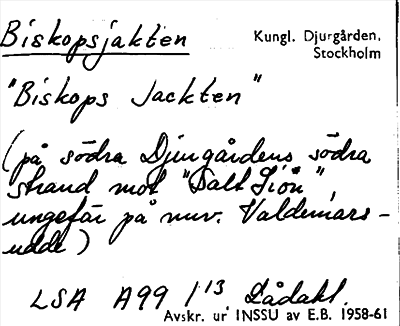 Biskopsjakten
Kungl. Djurgården,
Stockholm
"Biskops Jackten"
(på södra Djurgårdens södra
strand mot "Salt Siön",
ungefär på nuv. Valdemars-
udde)
LSA A99 1/13 Lådakt.
Avskr. ur INSSU av E.B. 1958-61